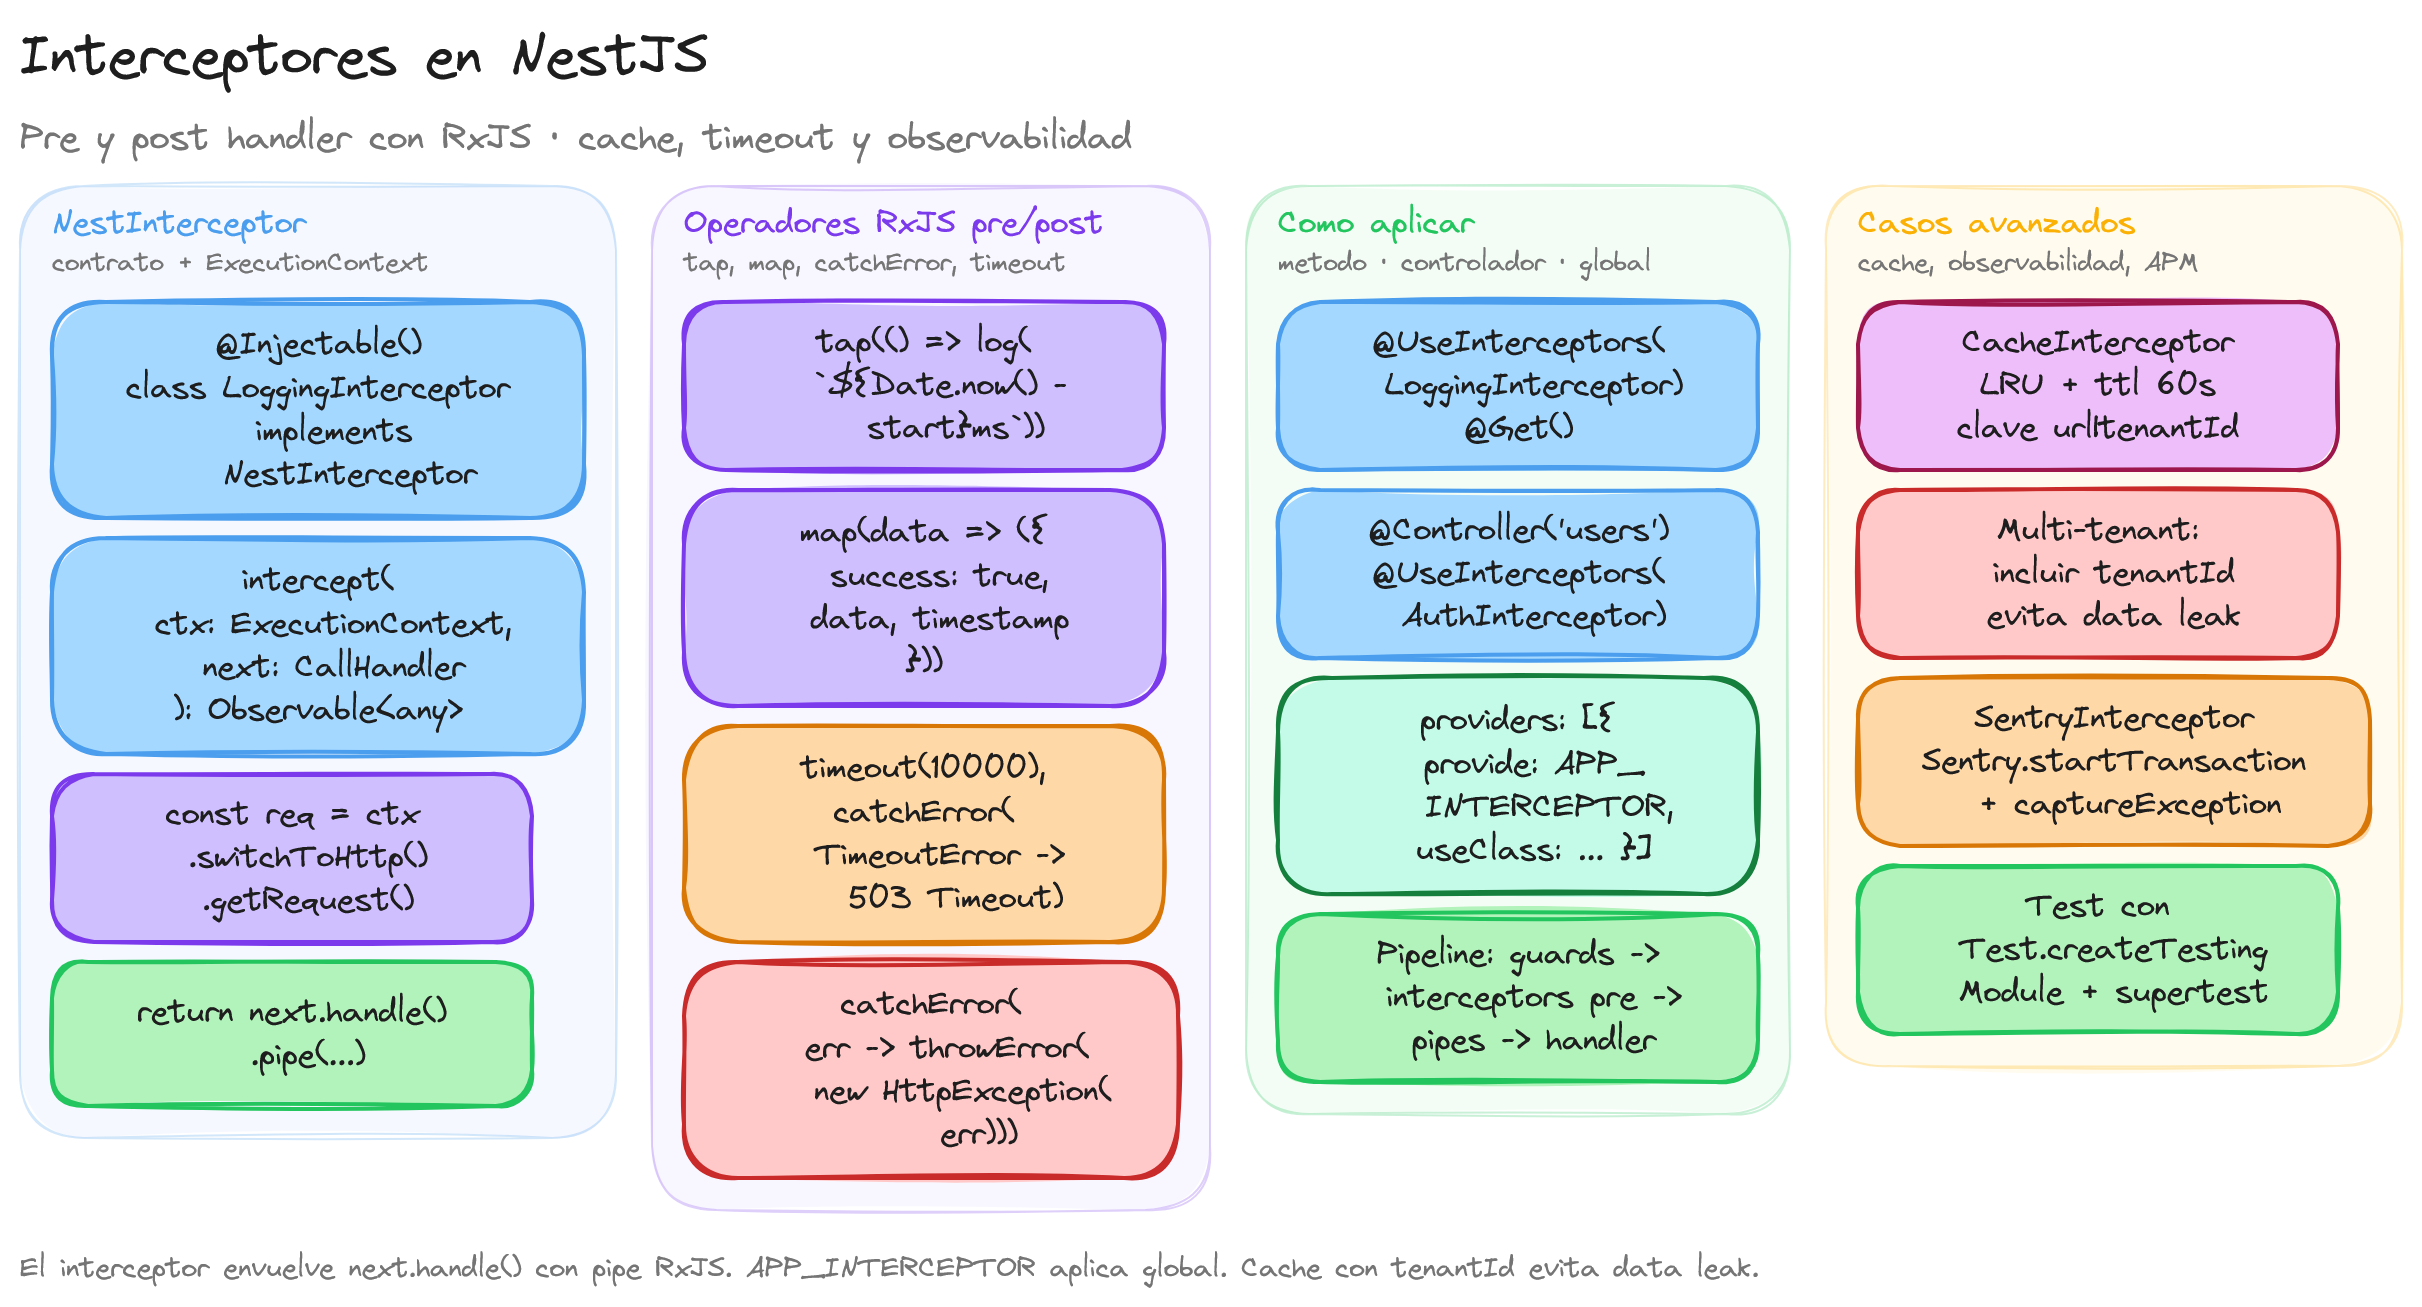 Interceptores en NestJS
Pre y post handler con RxJS · cache, timeout y observabilidad
NestInterceptor
contrato + ExecutionContext
@Injectable()
class LoggingInterceptor
implements
NestInterceptor
intercept(
ctx: ExecutionContext,
next: CallHandler
): Observable<any>
const req = ctx
.switchToHttp()
.getRequest()
return next.handle()
.pipe(...)
Operadores RxJS pre/post
tap, map, catchError, timeout
tap(() => log(
`${Date.now() -
start}ms`))
map(data => ({
success: true,
data, timestamp
}))
timeout(10000),
catchError(
TimeoutError ->
503 Timeout)
catchError(
err -> throwError(
new HttpException(
err)))
Como aplicar
metodo · controlador · global
@UseInterceptors(
LoggingInterceptor)
@Get()
@Controller('users')
@UseInterceptors(
AuthInterceptor)
providers: [{
provide: APP_
INTERCEPTOR,
useClass: ... }]
Pipeline: guards ->
interceptors pre ->
pipes -> handler
Casos avanzados
cache, observabilidad, APM
CacheInterceptor
LRU + ttl 60s
clave url|tenantId
Multi-tenant:
incluir tenantId
evita data leak
SentryInterceptor
Sentry.startTransaction
+ captureException
Test con
Test.createTesting
Module + supertest
El interceptor envuelve next.handle() con pipe RxJS. APP_INTERCEPTOR aplica global. Cache con tenantId evita data leak.